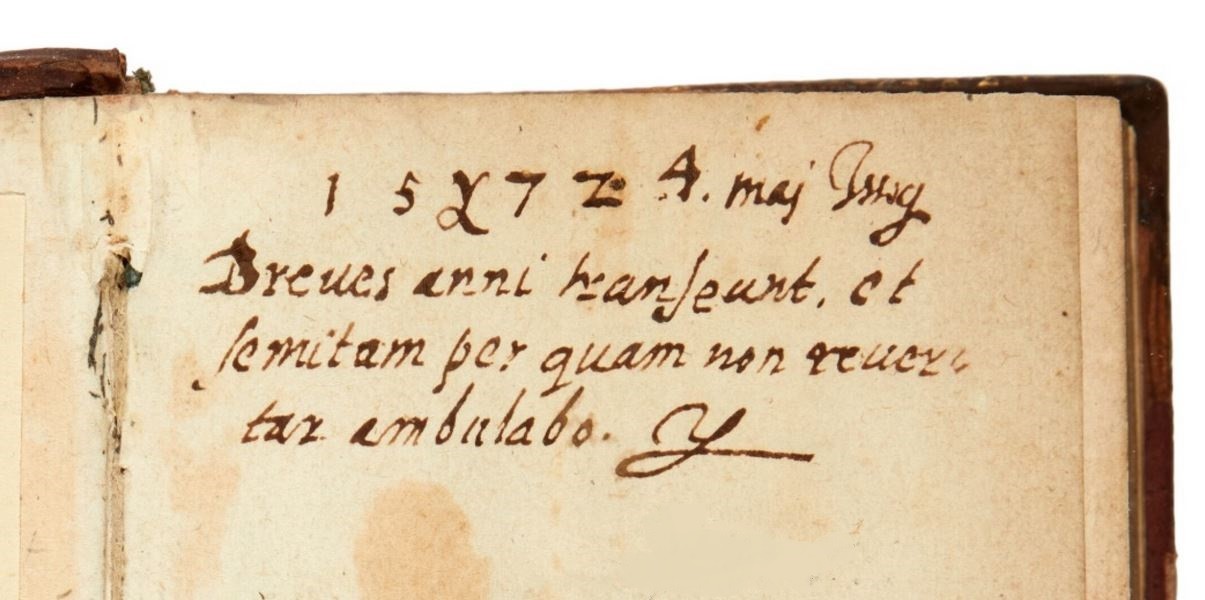 15 X 72 4. maj
Breues anni transeunt, et
semitam per quam non reuer
tar ambulabo.